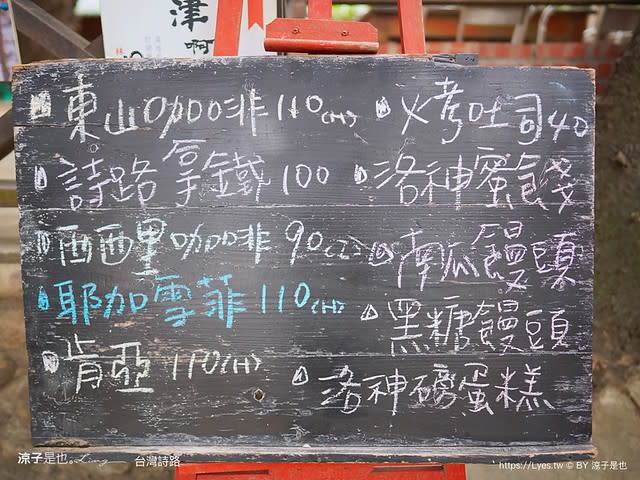 津
啊
東山咖啡 110 (H)
詩路拿鐵 100
西西里咖啡 90 (I)
耶加雪菲 110 (H)
肯亞 110 (H)
火烤吐司 40
洛神蜜餞
南瓜饅頭
黑糖饅頭
洛神磅蛋糕
涼子是也 Liang 台灣詩路
https://Lyes.tw © BY 涼子是也